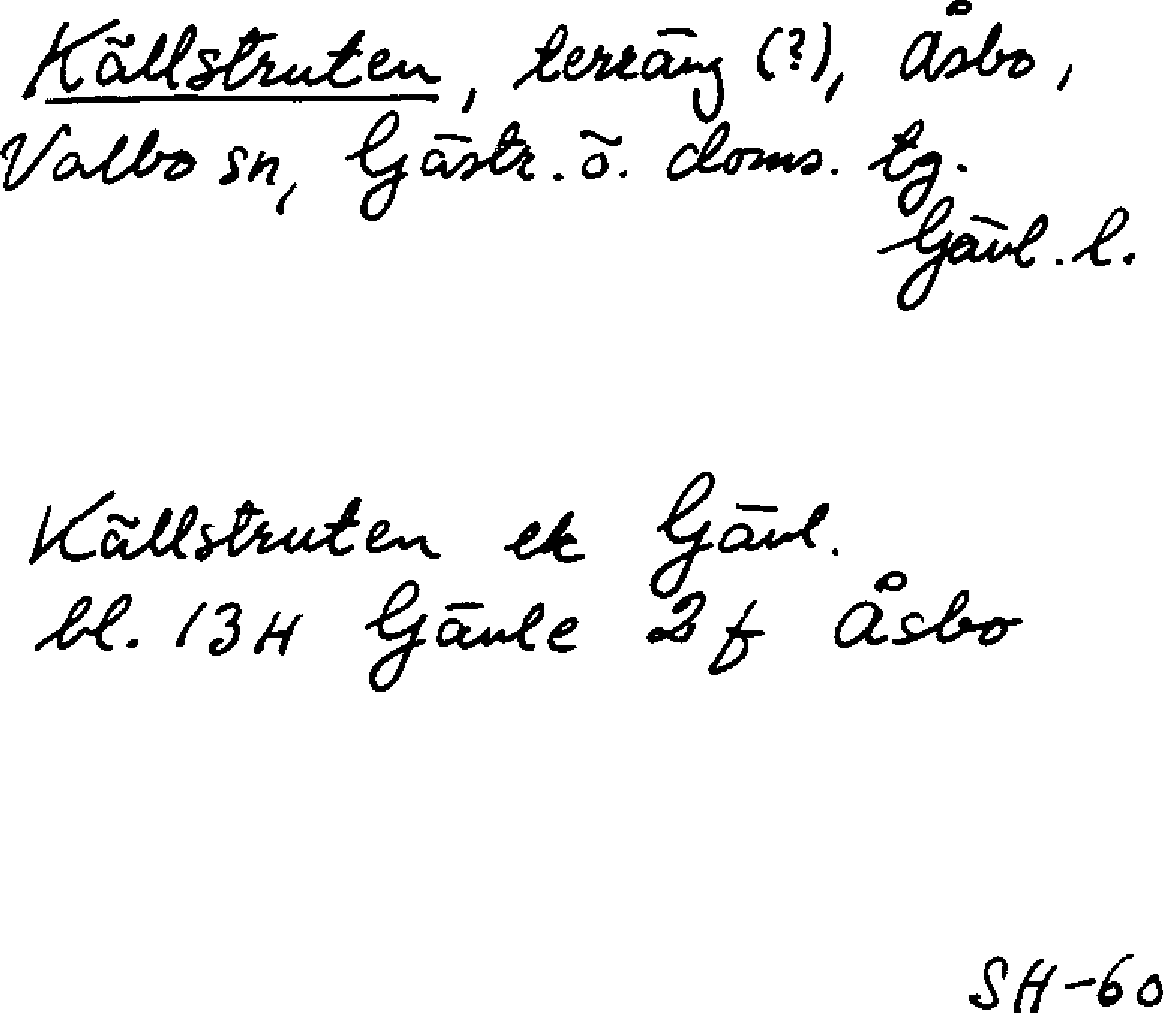 Källstruten, terräng (?), Åsbo,
Valbo sn, Gästr. ö. doms. tg.
Gävl. l.
Källstruten ek Gävl.
bl. 13H Gävle 2f Åsbo
SH-60